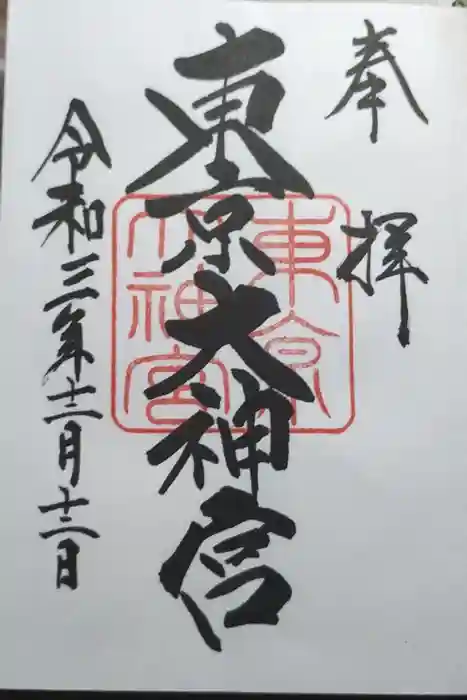 奉拝
東京大神宮
東京大神宮
令和三年十二月十三日